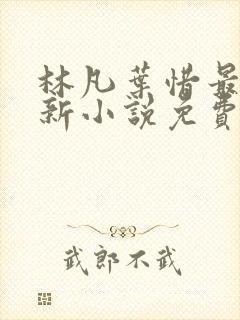 林凡葉惜最
新小說免費
武郎不武